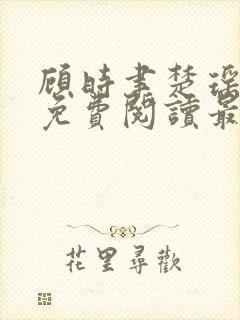 顾時書楚瑶
免費閱讀最
花里尋歡